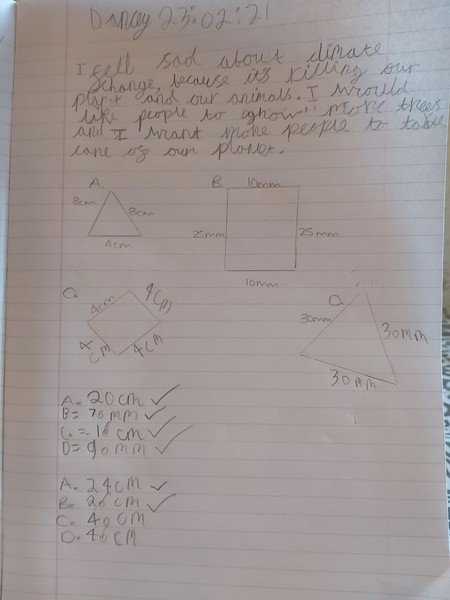 Dancey 23:02:21
I fell sad about climate
change, because it's killing our
planet and our animals. I would
like people to grow more trees
and I want more people to take
care of our planet.
A. B. 10mm
8cm 8cm 25mm 25mm
4cm
10mm
C. 4cm 4cm D.
30mm 30mm
4cm 4cm
30mm
A = 20cm ✓
B = 70mm ✓
C = 16cm ✓
D = 90mm ✓
A. 24cm ✓
B. 20cm ✓
C. 40cm
D. 40cm